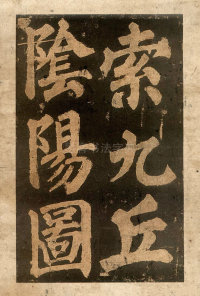 索九丘
陰陽圖